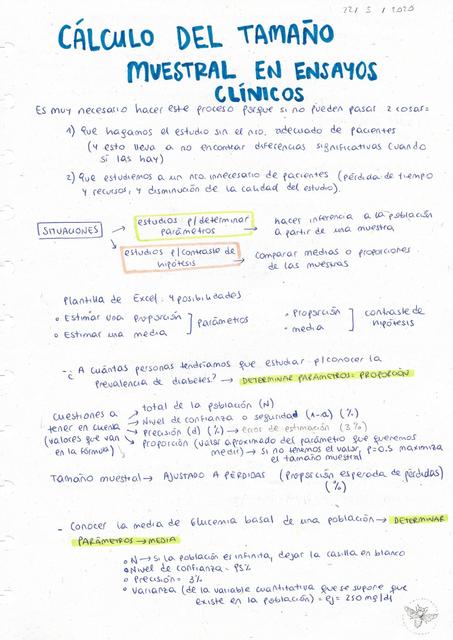 22/ 5 / 2020
CÁLCULO DEL TAMAÑO
MUESTRAL EN ENSAYOS
CLÍNICOS
Es muy necesario hacer este proceso porque si no pueden pasar 2 cosas:
1) Que hagamos el estudio sin el nro. adecuado de pacientes
(y esto lleva a no encontrar diferencias significativas cuando
sí las hay)
2) Que estudiemos a un nro. innecesario de pacientes (pérdida de tiempo
y recursos, y disminución de la calidad del estudio).
SITUACIONES → estudios p/determinar parámetros → hacer inferencia a la población
a partir de una muestra
→ estudios p/contraste de hipótesis → comparar medias o proporciones
de las muestras
Plantilla de Excel: 4 posibilidades
• Estimar una proporción
• Estimar una media
] parámetros
• Proporción
• media
] contraste de
hipótesis
- ¿A cuántas personas tendríamos que estudiar p/conocer la
prevalencia de diabetes? → DETERMINAR PARÁMETROS: PROPORCIÓN
Cuestiones a
tener en cuenta
(valores que van
en la fórmula)
→ total de la población (N)
→ Nivel de confianza o seguridad (1-α) (%)
→ Precisión (d) (%) → error de estimación (3%)
→ Proporción (valor aproximado del parámetro que queremos
medir) → si no tenemos el valor, p=0.5 maximiza
el tamaño muestral
Tamaño muestral → AJUSTADO A PÉRDIDAS (Proporción esperada de pérdidas)
(%)
- Conocer la media de Glucemia basal de una población → DETERMINAR
PARÁMETROS → MEDIA
• N → Si la población es infinita, dejar la casilla en blanco
• Nivel de confianza = 95%
• Precisión = 3%
• Varianza (de la variable cuantitativa que se supone que
existe en la población) = ej = 250 mg/dl